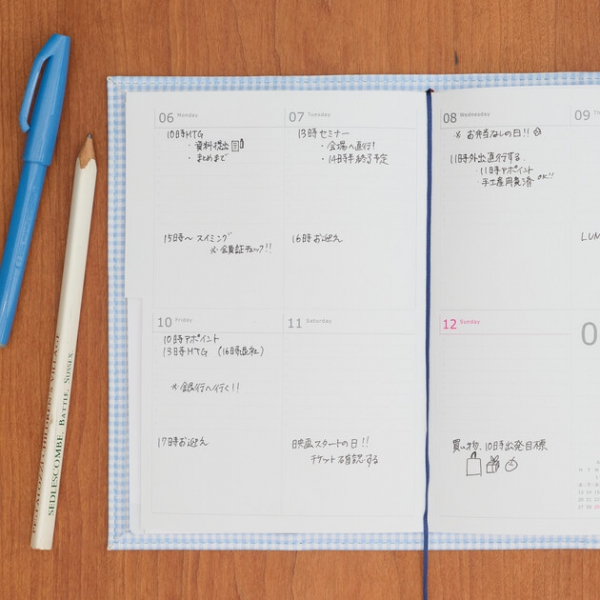 06 Monday
10時HTG
・資料提出
・まとめまで
15時～ スイミング
※会員証チェック!!
07 Tuesday
13時セミナー
・会場へ直行!
・14時半終了予定
16時お迎え
08 Wednesday
※ お弁当なしの日!!
11時外出直行する.
・11時アポイント
・手土産用意済 OK!!
09
LUN
10 Friday
10時アポイント
13時HTG (16時退社)
※銀行へ行く!!
17時お迎え
11 Saturday
映画スタートの日!!
チケット確認する
12 Sunday
買い物. 10時出発目標
SEDLESCOMBE, BATTLE, SUSSEX
PESTALOZZI CHILDREN'S VILLAGE